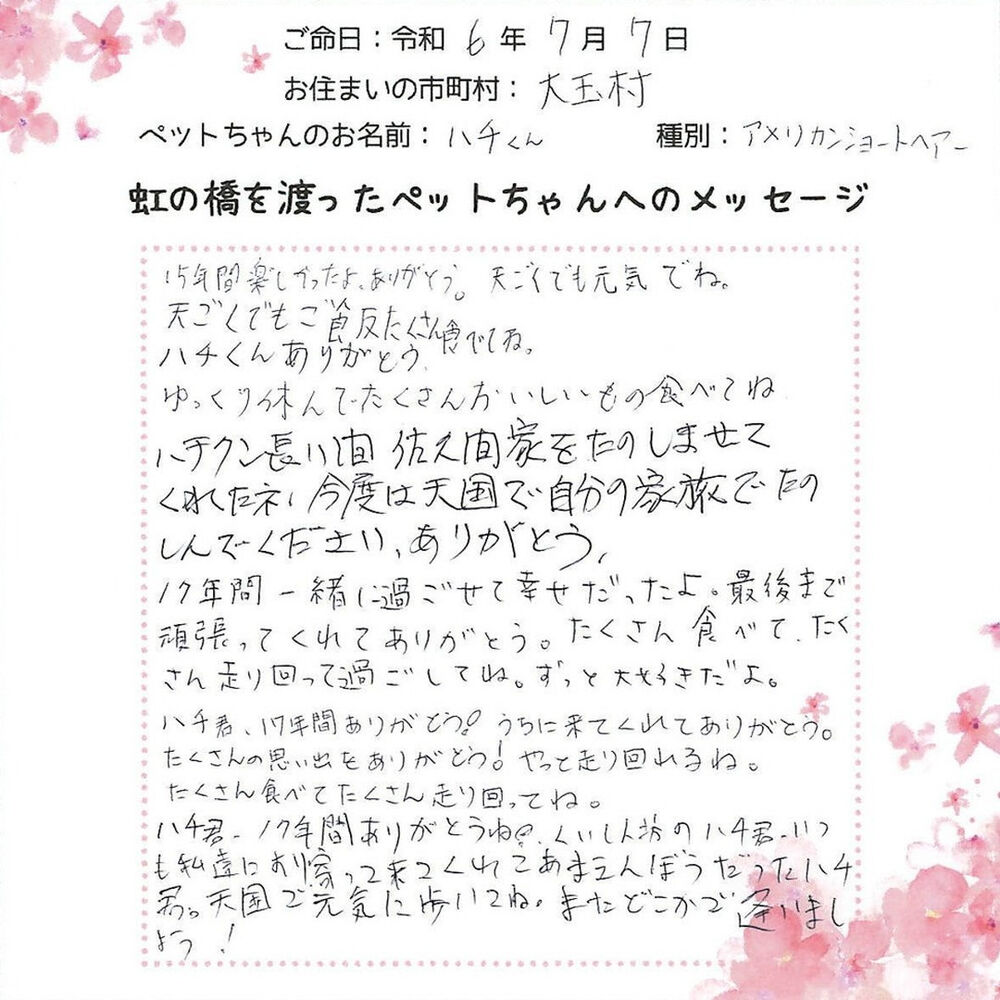 ご命日：令和 6 年 7 月 7 日
お住まいの市町村： 大玉村
ペットちゃんのお名前： ハチくん 種別： アメリカンショートヘアー
虹の橋を渡ったペットちゃんへのメッセージ
15年間楽しかったよ、ありがとう。 天ごくでも元気でね。
天ごくでもご飯たくさん食でてね。
ハチくんありがとう。
ゆっくり休んでたくさんおいしいもの食べてね
ハチクン長い間 佐久間家をたのしませて
くれたネ、今度は天国で自分の家族でたの
しんでください、ありがとう、
17年間一緒に過ごせて幸せだったよ。最後まで
頑張ってくれてありがとう。たくさん食べて、たく
さん走り回って過ごしてね。ずっと大好きだよ。
ハチ君、17年間ありがとう！うちに来てくれてありがとう。
たくさんの思い出をありがとう！やっと走り回れるね。
たくさん食べてたくさん走り回ってね。
ハチ君、17年間ありがとうね！、くいしん坊のハチ君、いつ
も私達におり寄って来てくれてあまえんぼうだったハチ
君。天国で元気に歩いてね。またどこかで逢いまし
ょう！